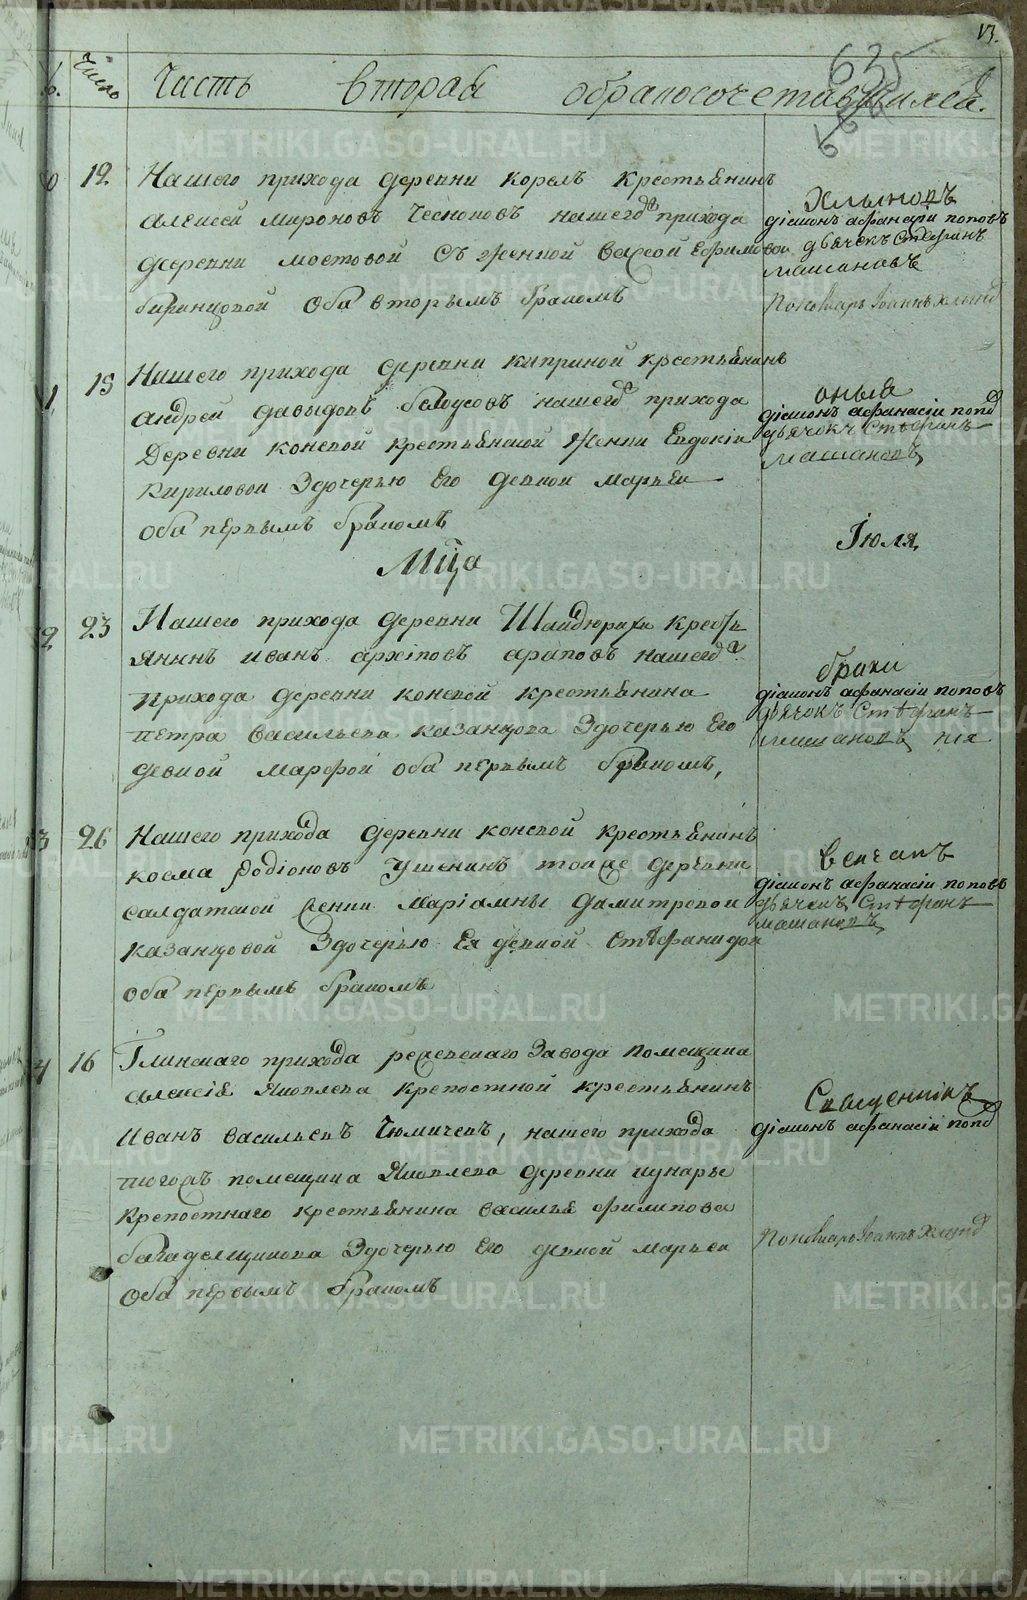 13.
635
Число
Часть вторая обракосочетавшихся.
12 Нашего прихода деревни корелъ крестьянинъ
алексей мироновъ чесноковъ нашегожъ прихода
деревни мостовой съ женкой вассой ефимовой
оба вторымъ бракомъ
Хлыновъ
діаконъ афанасіи поповъ
дьячекъ Стефанъ
машановъ
Пономарь Іоаннъ хлынов
15 Нашего прихода деревни киприной крестьянинъ
андрей давыдовъ белоусовъ нашегожъ прихода
деревни коневой крестьянской женки Евдокіи
Кириловой Здочерью Его девкой марьеи
оба первымъ бракомъ
оныя
діаконъ афанасіи попов
дьячокъ Стефанъ
машановъ
Мца Іюля
23 Нашего прихода деревни Шайдюрахи Кресть
янинъ иванъ архіповъ араповъ нашегожъ
прихода деревни коневой крестьянина
петра васильева казанцова Здочерью Его
девкой марфой оба первымъ бракомъ,
браки
діаконъ афанасіи поповъ
дьячокъ Стефанъ
машановъ
26 Нашего прихода деревни коневой крестьянинъ
косма родіоновъ Ушенинъ тояже деревни
салдатской женки Маріамны димитревой
казанцовой Здочерью Ея девкой Стефанидой
оба первымъ бракомъ
венчалъ
діаконъ афанасіи поповъ
дьячекъ Стефанъ
машановъ
16 Глинскаго прихода режевскаго Завода помещика
алексія Яковлева крепостной крестьянинъ
Иванъ васильевъ Чюмичевъ, нашего прихода
тогожъ помещика Яковлева деревни
крепостнаго крестьянина василья филипова
Здочерью Его девкой марьеи
оба первымъ бракомъ
Священникъ
діаконъ афанасіи попов
Пономарь Іоаннъ хлынов
METRIKI.GASO-URAL.RU